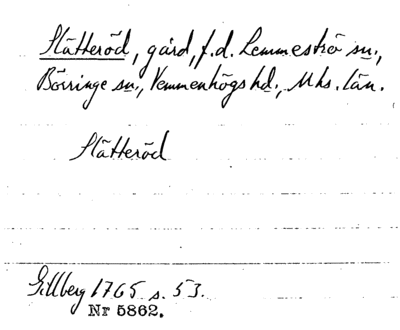 Slätteröd, gård, f.d. Lemmeströ sn.,
Börringe sn., Vemmenhögs hd., Mhs. län.
Slätteröd
Gillberg 1765 s. 53.
Nr 5862.